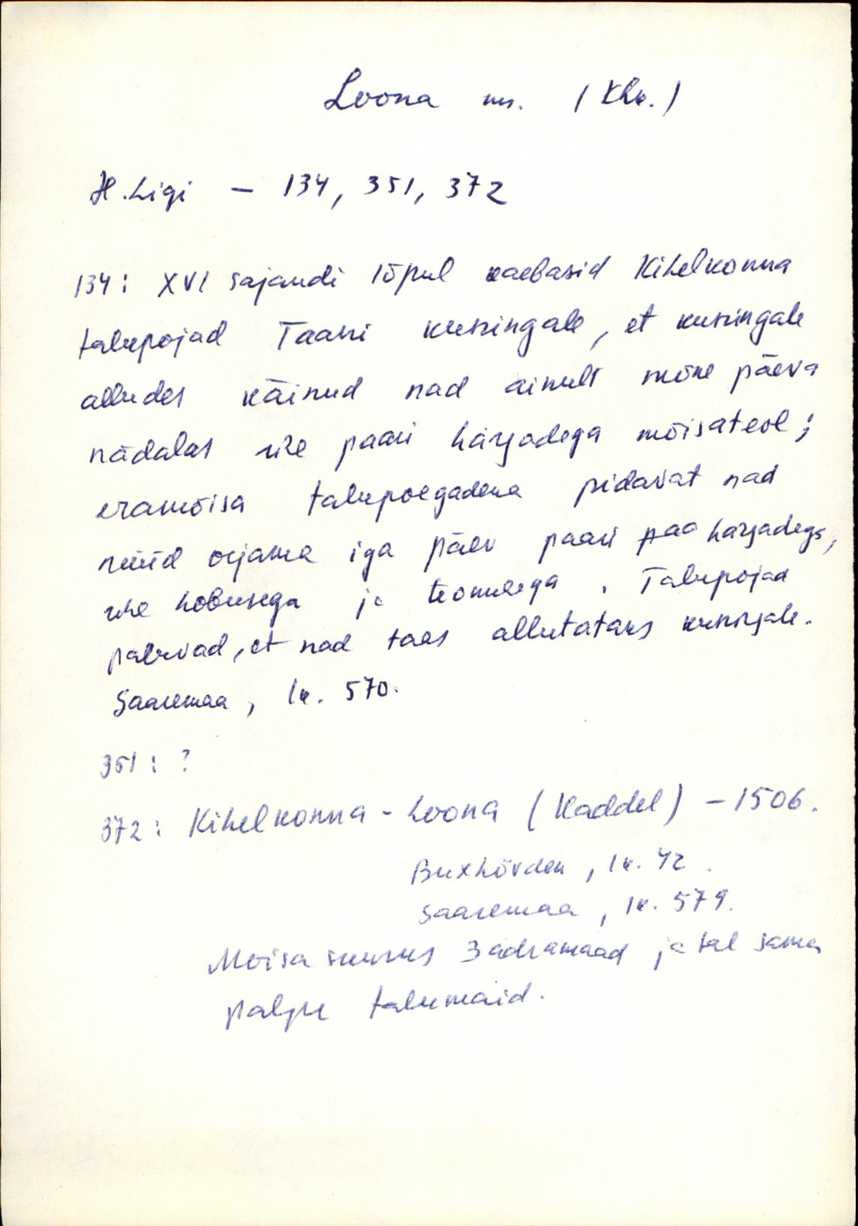 Loona ms. (Khk.)
H. Ligi – 134, 351, 372
134: XVI sajandi lõpul kaebasid Kihelkonna
talupojad Taani kuningale, et kuningale
alludes käinud nad ainult mõne päeva
nädalas ühe paari härjadega mõisateol;
eramõisa talupoegadena pidavat nad
nüüd orjama iga päev paari paa härjadega,
ühe hobusega ja teomehega. Talupojad
paluvad, et nad taas allutataks kuningale.
Saaremaa, lk. 570.
351: ?
372: Kihelkonna-Loona (Kaddel) – 1506.
Buxhövden, lk. 42.
Saaremaa, lk. 579.
Mõisa suurus 3 adramaad ja tal sama
palju talumaid.